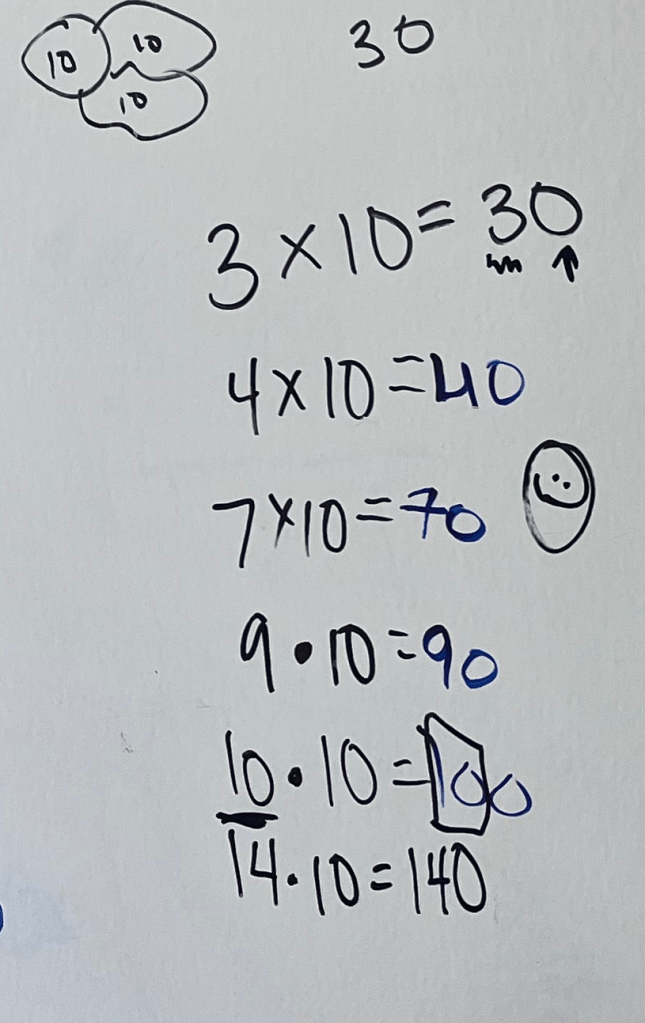 10 10 30
10
3 × 10 = 30
4 × 10 = 40
7 × 10 = 70
9 • 10 = 90
10 • 10 = 100
14 • 10 = 140